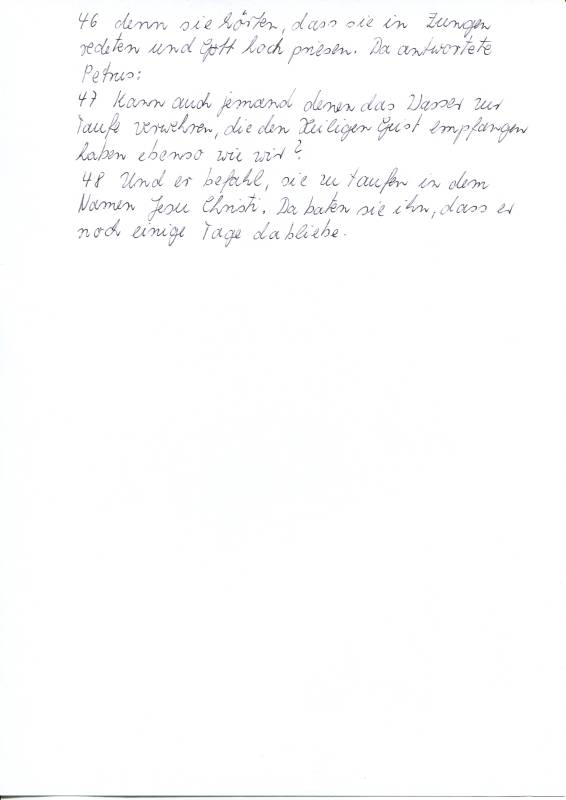 46 denn sie hörten, dass sie in Zungen
redeten und Gott hoch priesen. Da antwortete
Petrus:
47 Kann auch jemand denen das Wasser zur
Taufe verwehren, die den Heiligen Geist empfangen
haben ebenso wie wir?
48 Und er befahl, sie zu taufen in dem
Namen Jesu Christi. Da baten sie ihn, dass er
noch einige Tage dabliebe.